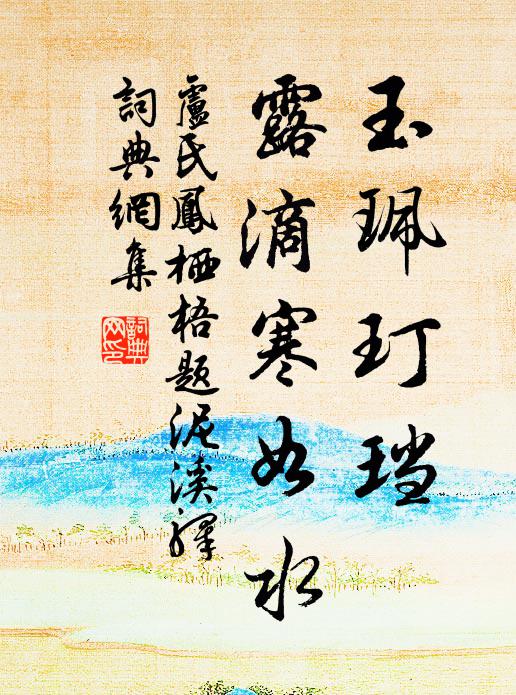 玉珮玎珰
露滴寒如水
盧氏鳳栖梧題泥溪驛
詞典網集
詞典网印